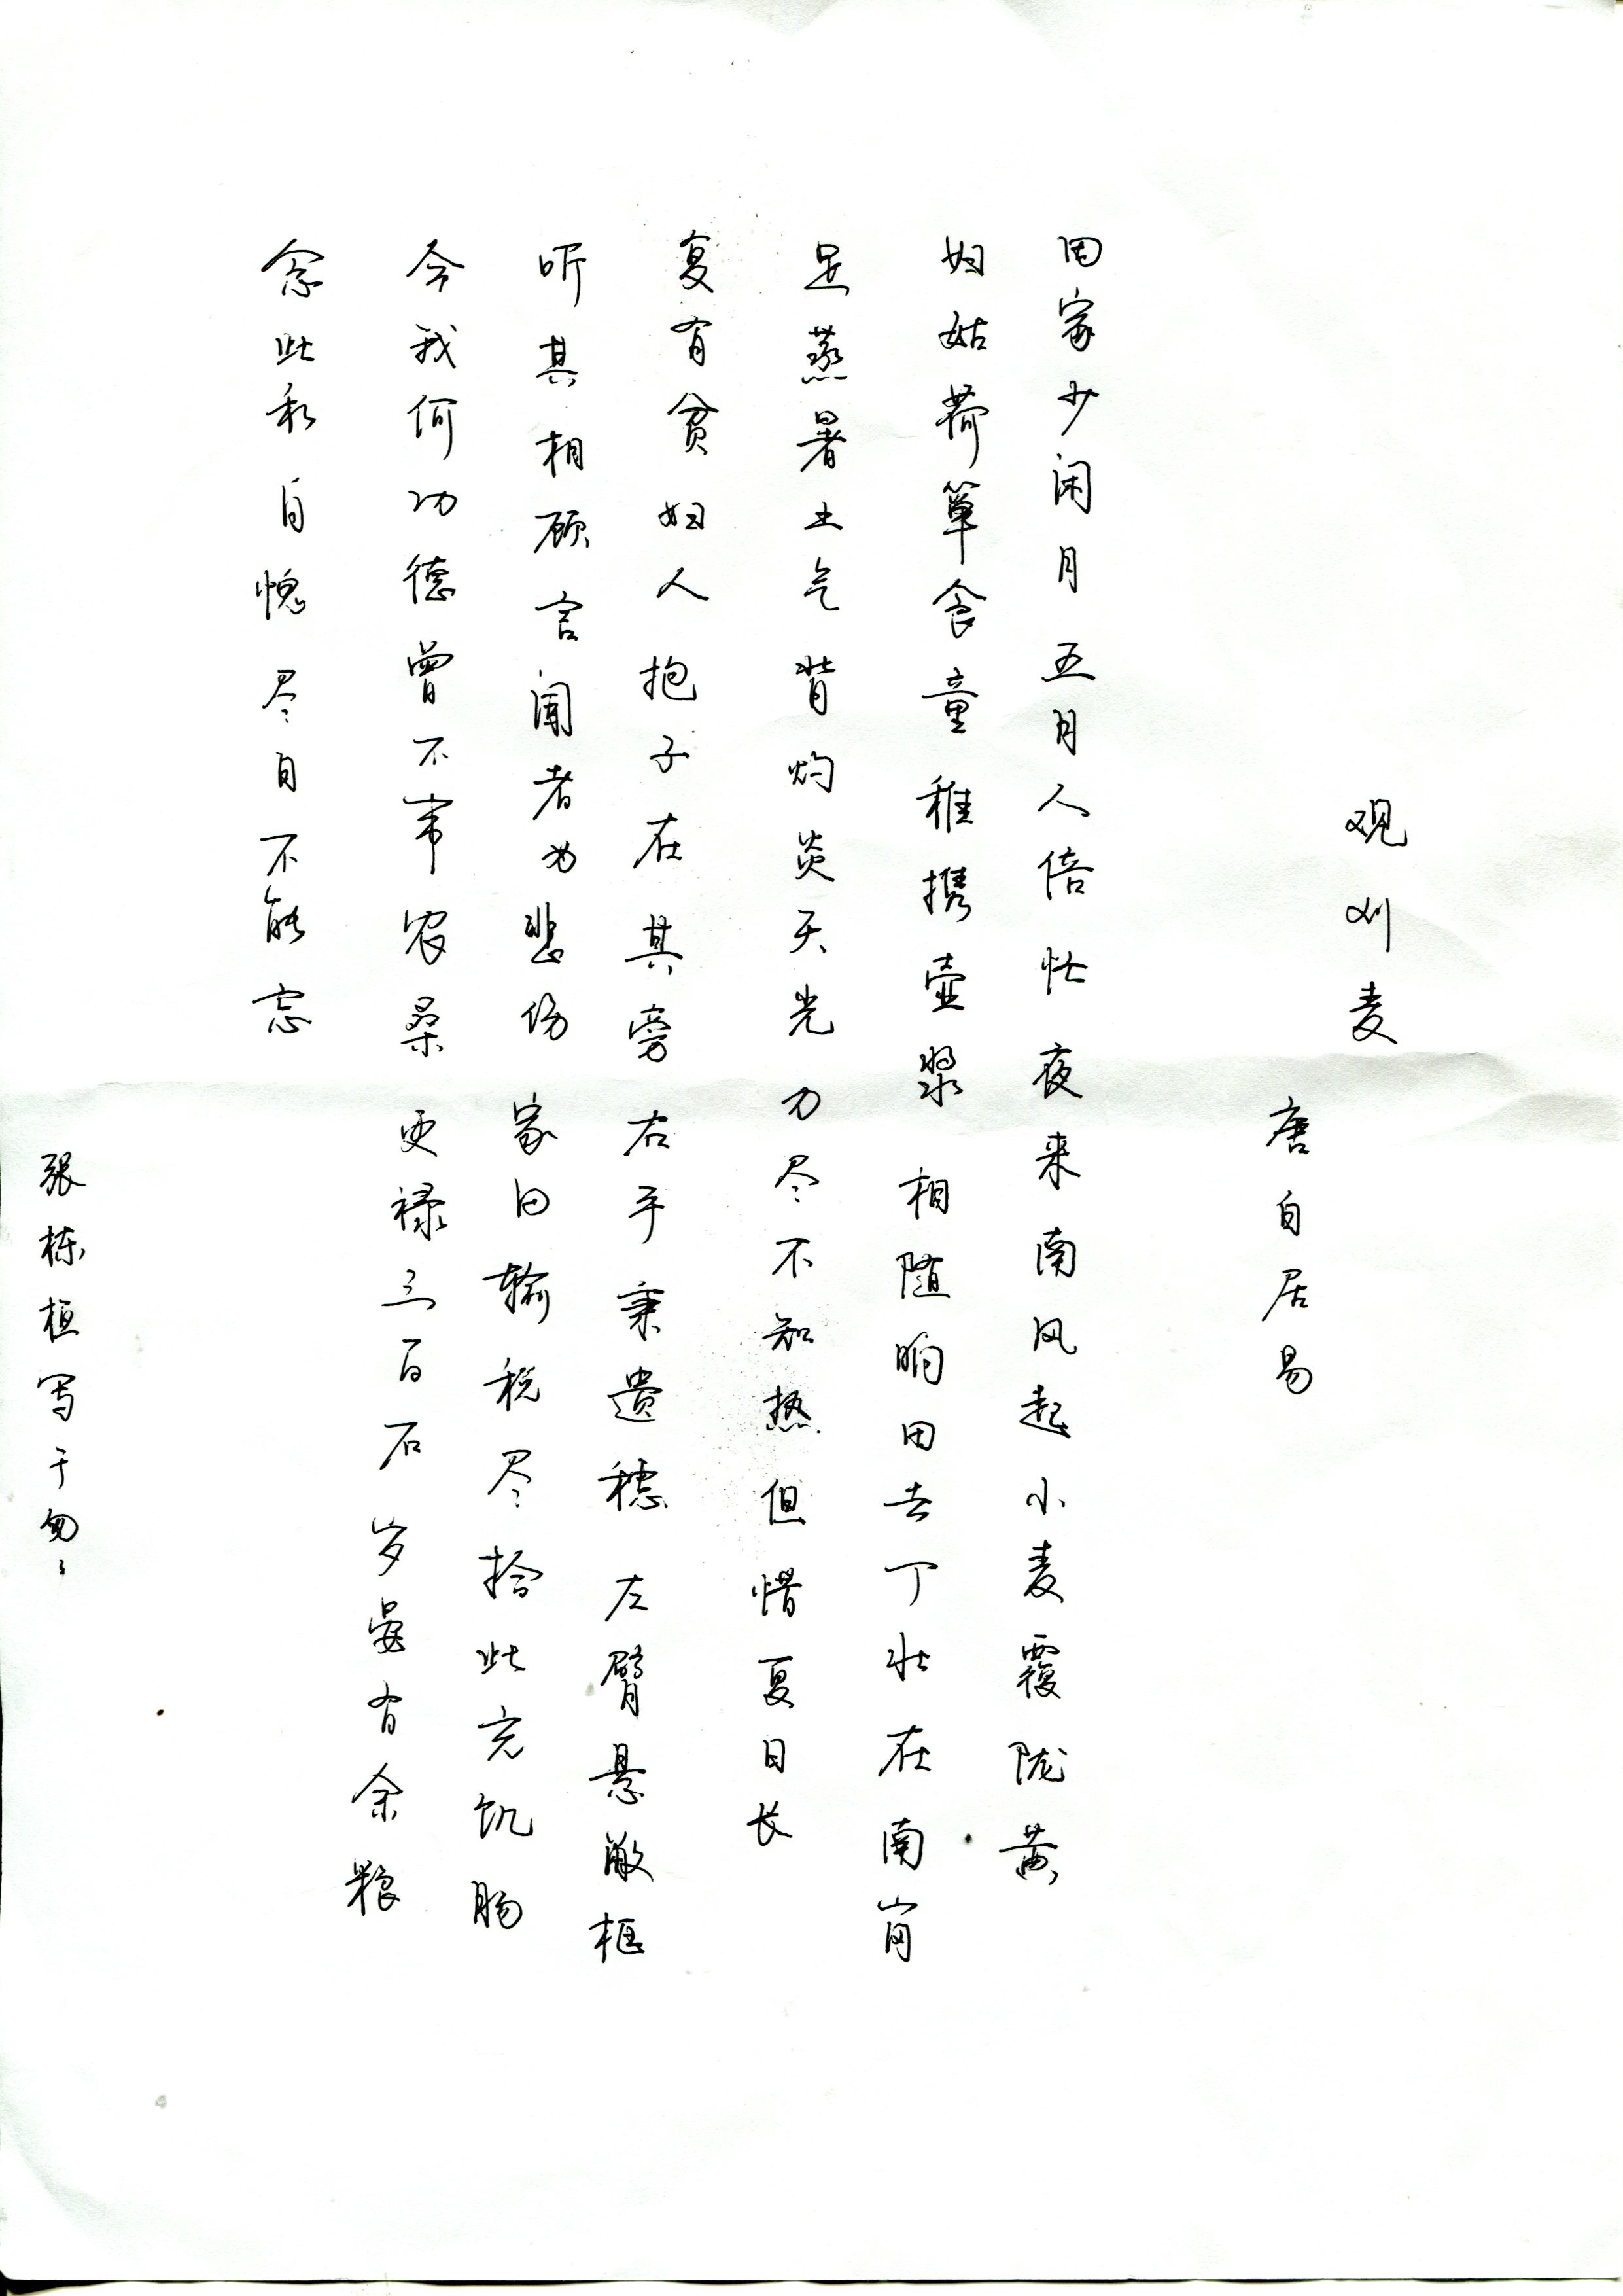 观刈麦
唐白居易
田家少闲月五月人倍忙夜来南风起小麦覆陇黄
妇姑荷箪食童稚携壶浆相随晌田去丁壮在南岗
足蒸暑土气背灼炎天光力尽不知热但惜夏日长
复有贫妇人抱子在其旁右手秉遗穗左臂悬敝框
听其相顾言闻者为悲伤家田输税尽拾此充饥肠
今我何功德曾不事农桑吏禄三百石岁晏有余粮
念此私自愧尽日不能忘
张栋桓写于匆々